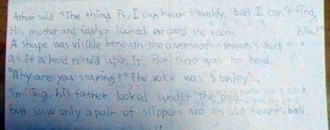 Arthur said "The thing is, I can hear Stanley, but I can't find
him!"
His mother and looked around the room.
A shape was visible beneath the covers of bed
as if a hand rested upon it. But there was no head.
"Why are you staring?" The voice was Stanley's.
Smiling, his father looked under the bed
but saw only a pair of slippers and an old tennis ball.